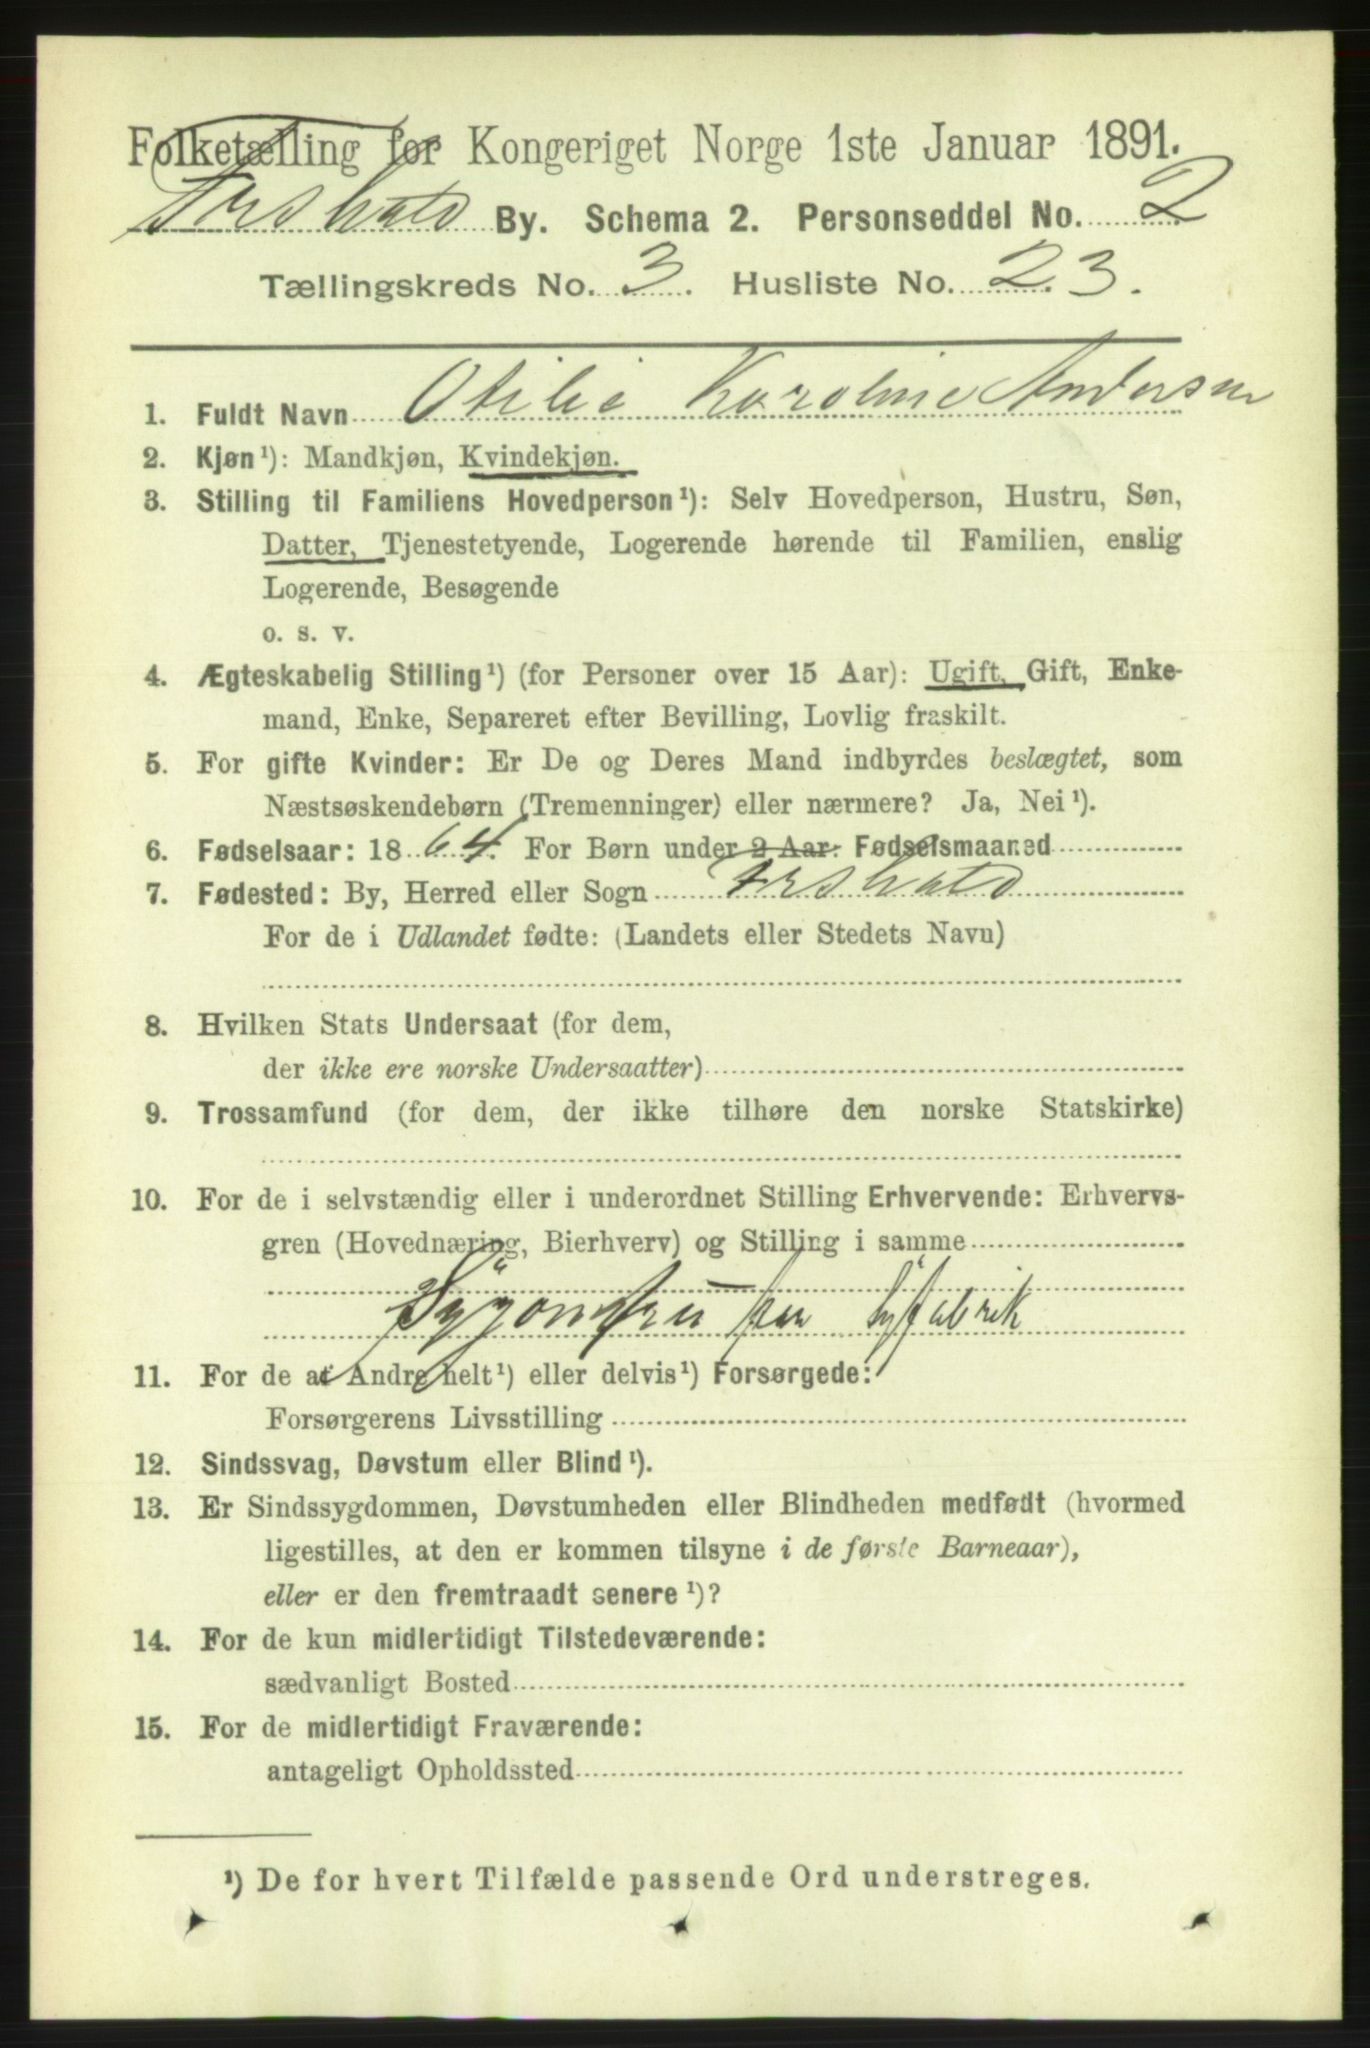 Folketælling for Kongeriget Norge 1ste Januar 1891.
Fr.shald By. Schema 2. Personseddel No. 2
Tællingskreds No. 3. Husliste No. 23.
1. Fuldt Navn Otilie Karoline Andersen
2. Kjøn¹): Mandkjøn, Kvindekjøn.
3. Stilling til Familiens Hovedperson¹): Selv Hovedperson, Hustru, Søn,
Datter, Tjenestetyende, Logerende hørende til Familien, enslig
Logerende, Besøgende
o. s. v.
4. Ægteskabelig Stilling¹) (for Personer over 15 Aar): Ugift, Gift, Enke-
mand, Enke, Separeret efter Bevilling, Lovlig fraskilt.
5. For gifte Kvinder: Er De og Deres Mand indbyrdes beslægtet, som
Næstsøskendebørn (Tremenninger) eller nærmere? Ja, Nei¹).
6. Fødselsaar: 1864. For Børn under 2 Aar: Fødselsmaaned
7. Fødested: By, Herred eller Sogn Frshald
For de i Udlandet fødte: (Landets eller Stedets Navn)
8. Hvilken Stats Undersaat (for dem,
der ikke ere norske Undersaatter)
9. Trossamfund (for dem, der ikke tilhøre den norske Statskirke)
10. For de i selvstændig eller i underordnet Stilling Erhvervende: Erhvervs-
gren (Hovednæring, Bierhverv) og Stilling i samme
Syjomfru paa Syfabrik
11. For de af Andre helt¹) eller delvis¹) Forsørgede:
Forsørgerens Livsstilling
12. Sindssvag, Døvstum eller Blind¹).
13. Er Sindssygdommen, Døvstumheden eller Blindheden medfødt (hvormed
ligestilles, at den er kommen tilsyne i de første Barneaar),
eller er den fremtraadt senere¹)?
14. For de kun midlertidigt Tilstedeværende:
sædvanligt Bosted
15. For de midlertidigt Fraværende:
antageligt Opholdssted
¹) De for hvert Tilfælde passende Ord understreges.